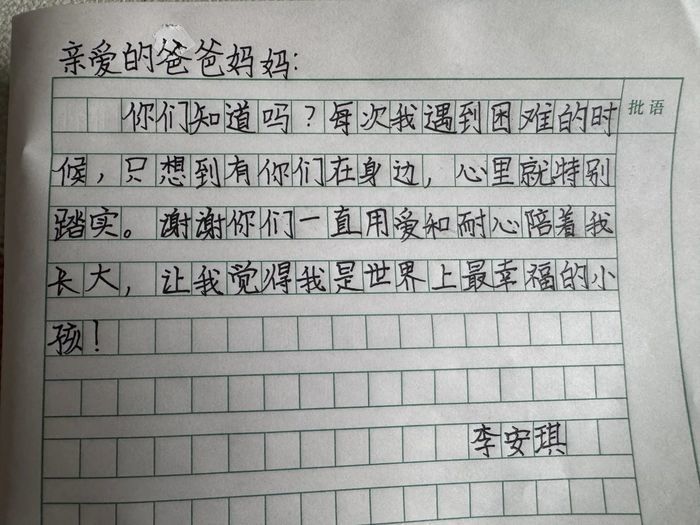 亲爱的爸爸妈妈:
你们知道吗?每次我遇到困难的时
批语
候,只想到有你们在身边,心里就特别
踏实。谢谢你们一直用爱和耐心陪着我
长大,让我觉得我是世界上最幸福的小
孩!
李安琪